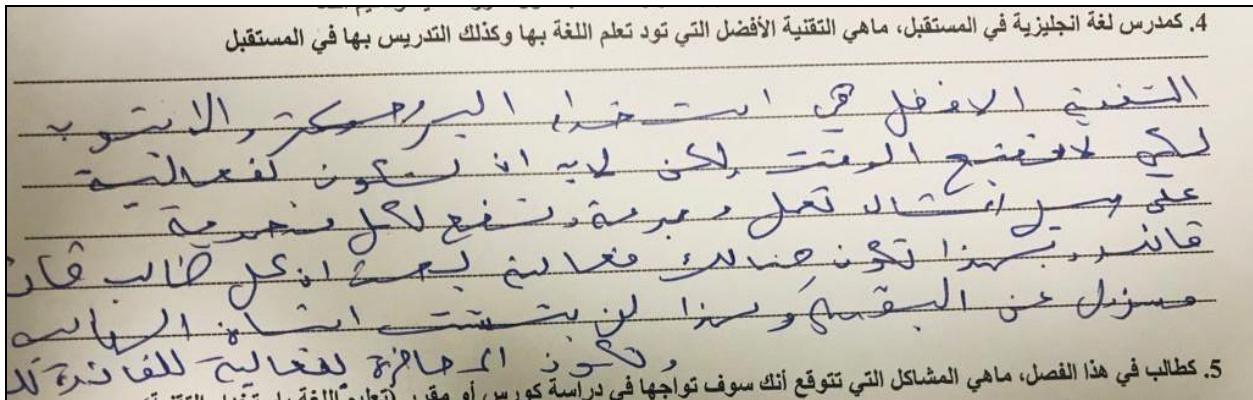 4. كمدرس لغة انجليزية في المستقبل، ماهي التقنية الأفضل التي تود تعلم اللغة بها وكذلك التدريس بها في المستقبل
التقنية الافضل هي استخدام البروجكتر والانترنت
لكي لا الوقت لكن لابد ان تكون فعالية
على تعمل مجموعة وتضع لكل مجموعة
قائد وبهذا تكون هنالك فعالية بحيث ان كل طالب قائد
مسؤول عن البقية وبهذا لن يتشتت انتباه الطالب
وتكون المحاضرة فعالية للفائدة
5. كطالب في هذا الفصل، ماهي المشاكل التي تتوقع أنك سوف تواجها في دراسة كورس أو مقرر (تعليم اللغة باستخدام التقنية)